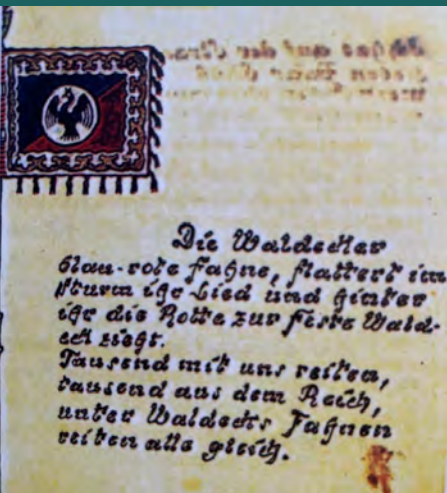 Die Waldecker
blau-rote Fahne, flattert im
Sturm ihr Lied und hinter
ihr die Rotte zur feste Wald-
eck zieht.
Tausend mit uns reiten,
tausend aus dem Reich,
unter Waldecks Fahnen
reiten alle gleich.